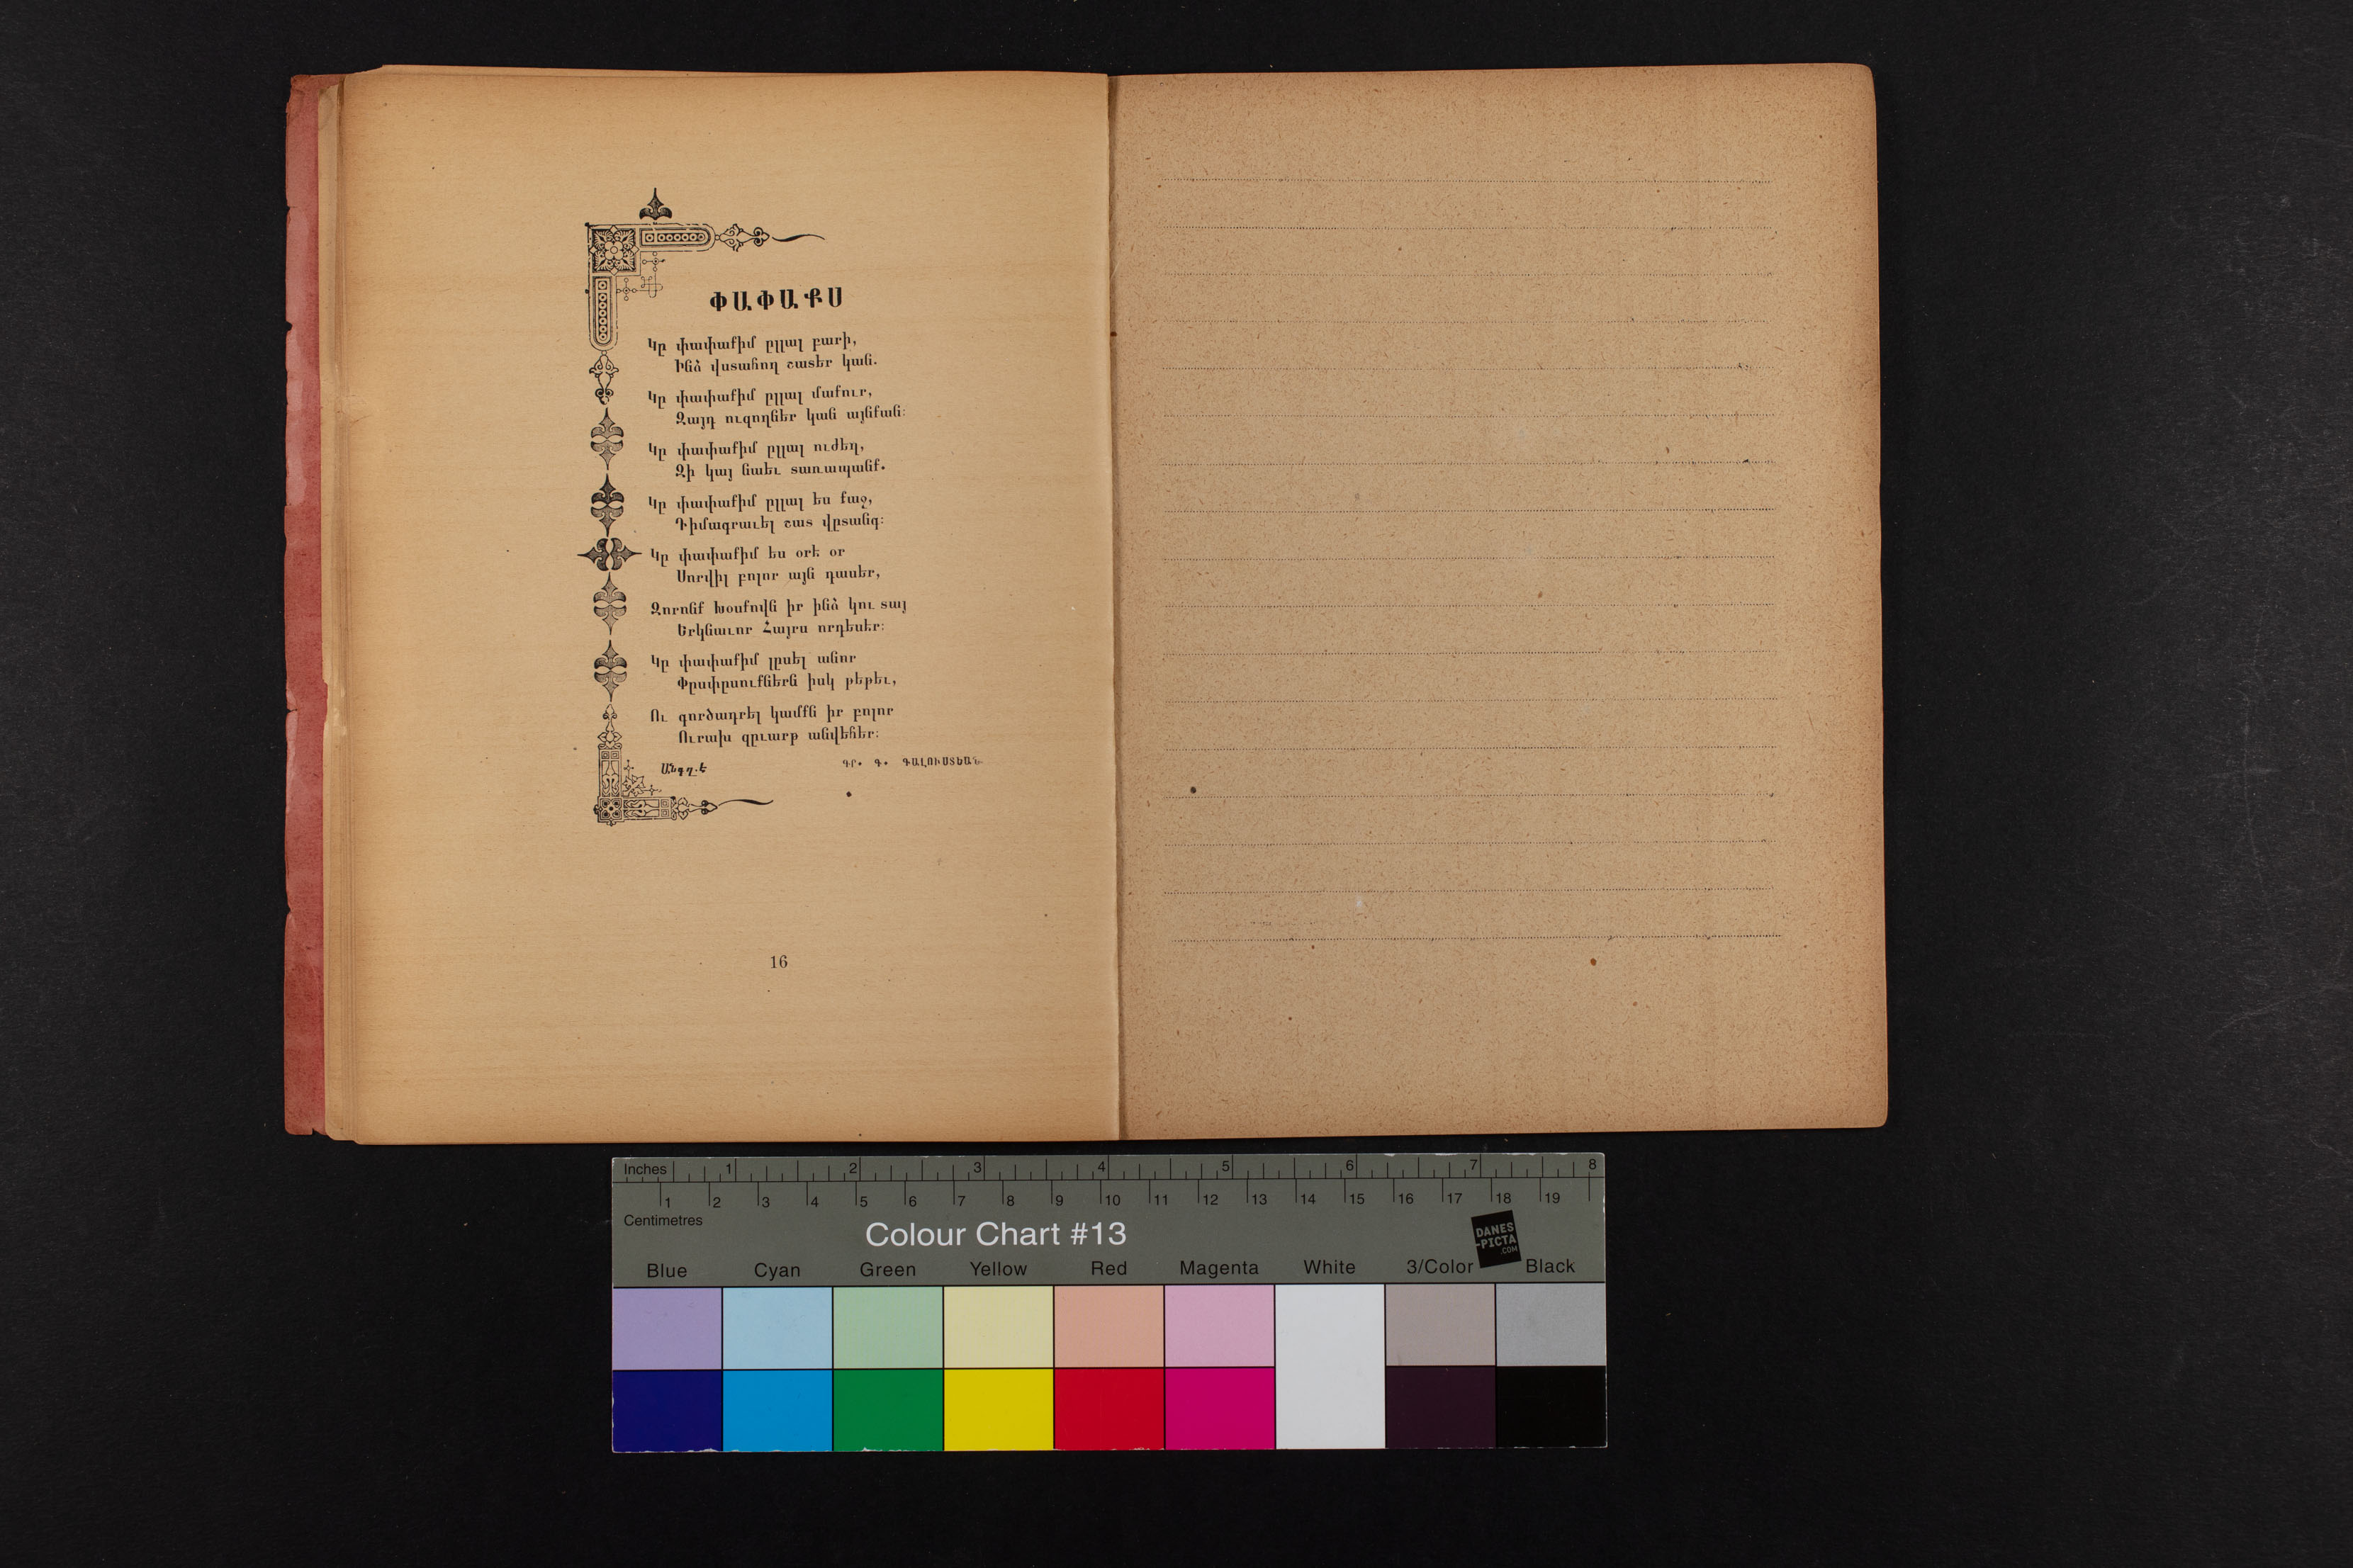 ՓԱՓԱՔՍ
Կը փափաքիմ ըլլալ բարի,
Ինձ վստահող շատեր կան.
Կը փափաքիմ ըլլալ մաքուր,
Զայդ ուզողներ կան այնքան։
Կը փափաքիմ ըլլալ ուժեղ,
Զի կայ նաեւ տառապանք.
Կը փափաքիմ ըլլալ ես քաջ,
Դիմագրաւել շատ վըտանգ։
Կը փափաքիմ ես օրէ օր
Սորվիլ բոլոր այն դասեր,
Զորոնք Խօսքովն իր ինձ կու տայ
Երկնաւոր Հայրս որդեսէր։
Կը փափաքիմ լըսել անոր
Փըսփըսուքներն իսկ թեթեւ,
Ու գործադրել կամքն իր բոլոր
Ուրախ զըւարթ անվեհեր։
Անգղ.է
ԳՐ. Գ. ԳԱԼՈՒՍՏԵԱՆ
16
Inches 1 2 3 4 5 6 7 8
1 2 3 4 5 6 7 8 9 10 11 12 13 14 15 16 17 18 19
Centimetres
Colour Chart #13
DANES
-PICTA
.COM
Blue Cyan Green Yellow Red Magenta White 3/Color Black